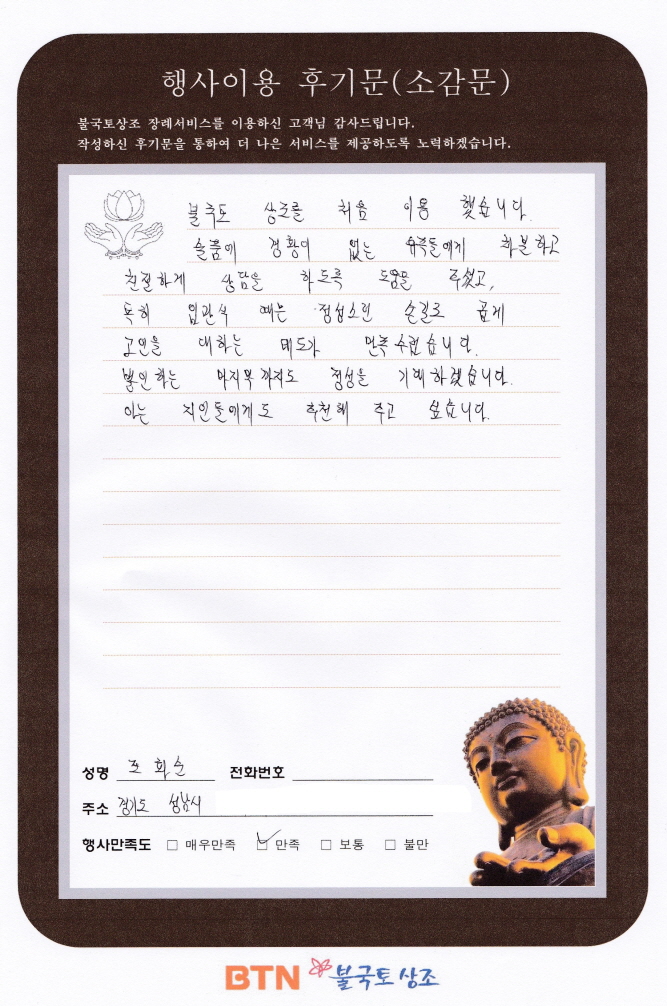 행사이용 후기문(소감문)
불국토상조 장례서비스를 이용하신 고객님 감사드립니다.
작성하신 후기문을 통하여 더 나은 서비스를 제공하도록 노력하겠습니다.
불국도 상조를 처음 이용 했습니다.
슬픔에 경황이 없는 유족들에게 차분하고
친절하게 상담을 하도록 도움을 주셨고,
특히 입관식 때는 정성스런 손길로 곱게
고인을 대하는 태도가 만족스러웠습니다.
발인하는 마지막까지도 정성을 기해하셨습니다.
아는 지인들에게도 추천해 주고 싶습니다.
성명 조화순 전화번호
주소 경기도 성남시
행사만족도 □ 매우만족 ☑ 만족 □ 보통 □ 불만
BTN 불국토상조